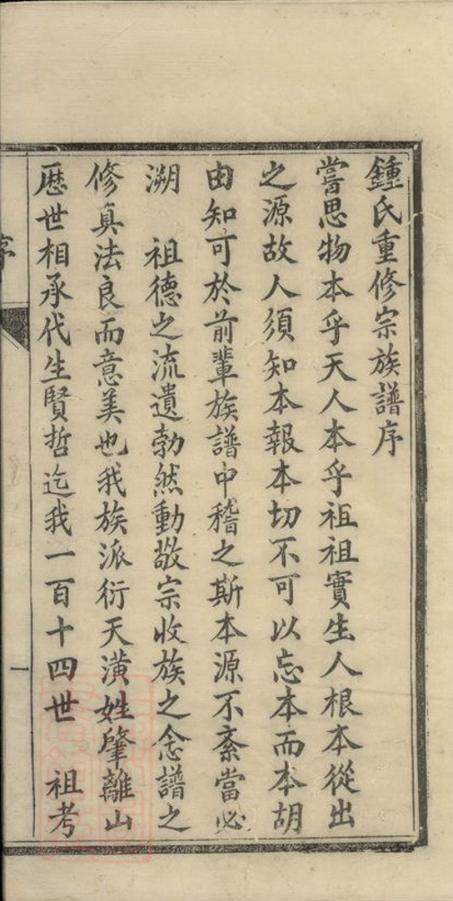 鍾氏重修宗族譜序
嘗思物本乎天人本乎祖祖實生人根本從出
之源故人須知本報本切不可以忘本而本胡
由知可於前輩族譜中稽之斯本源不紊當必
溯　祖德之流遺勃然動敬宗收族之念譜之
修真法良而意美也我族派衍天潢姓肇離山
歷世相承代生賢哲迄我一百十四世　祖考
序
一